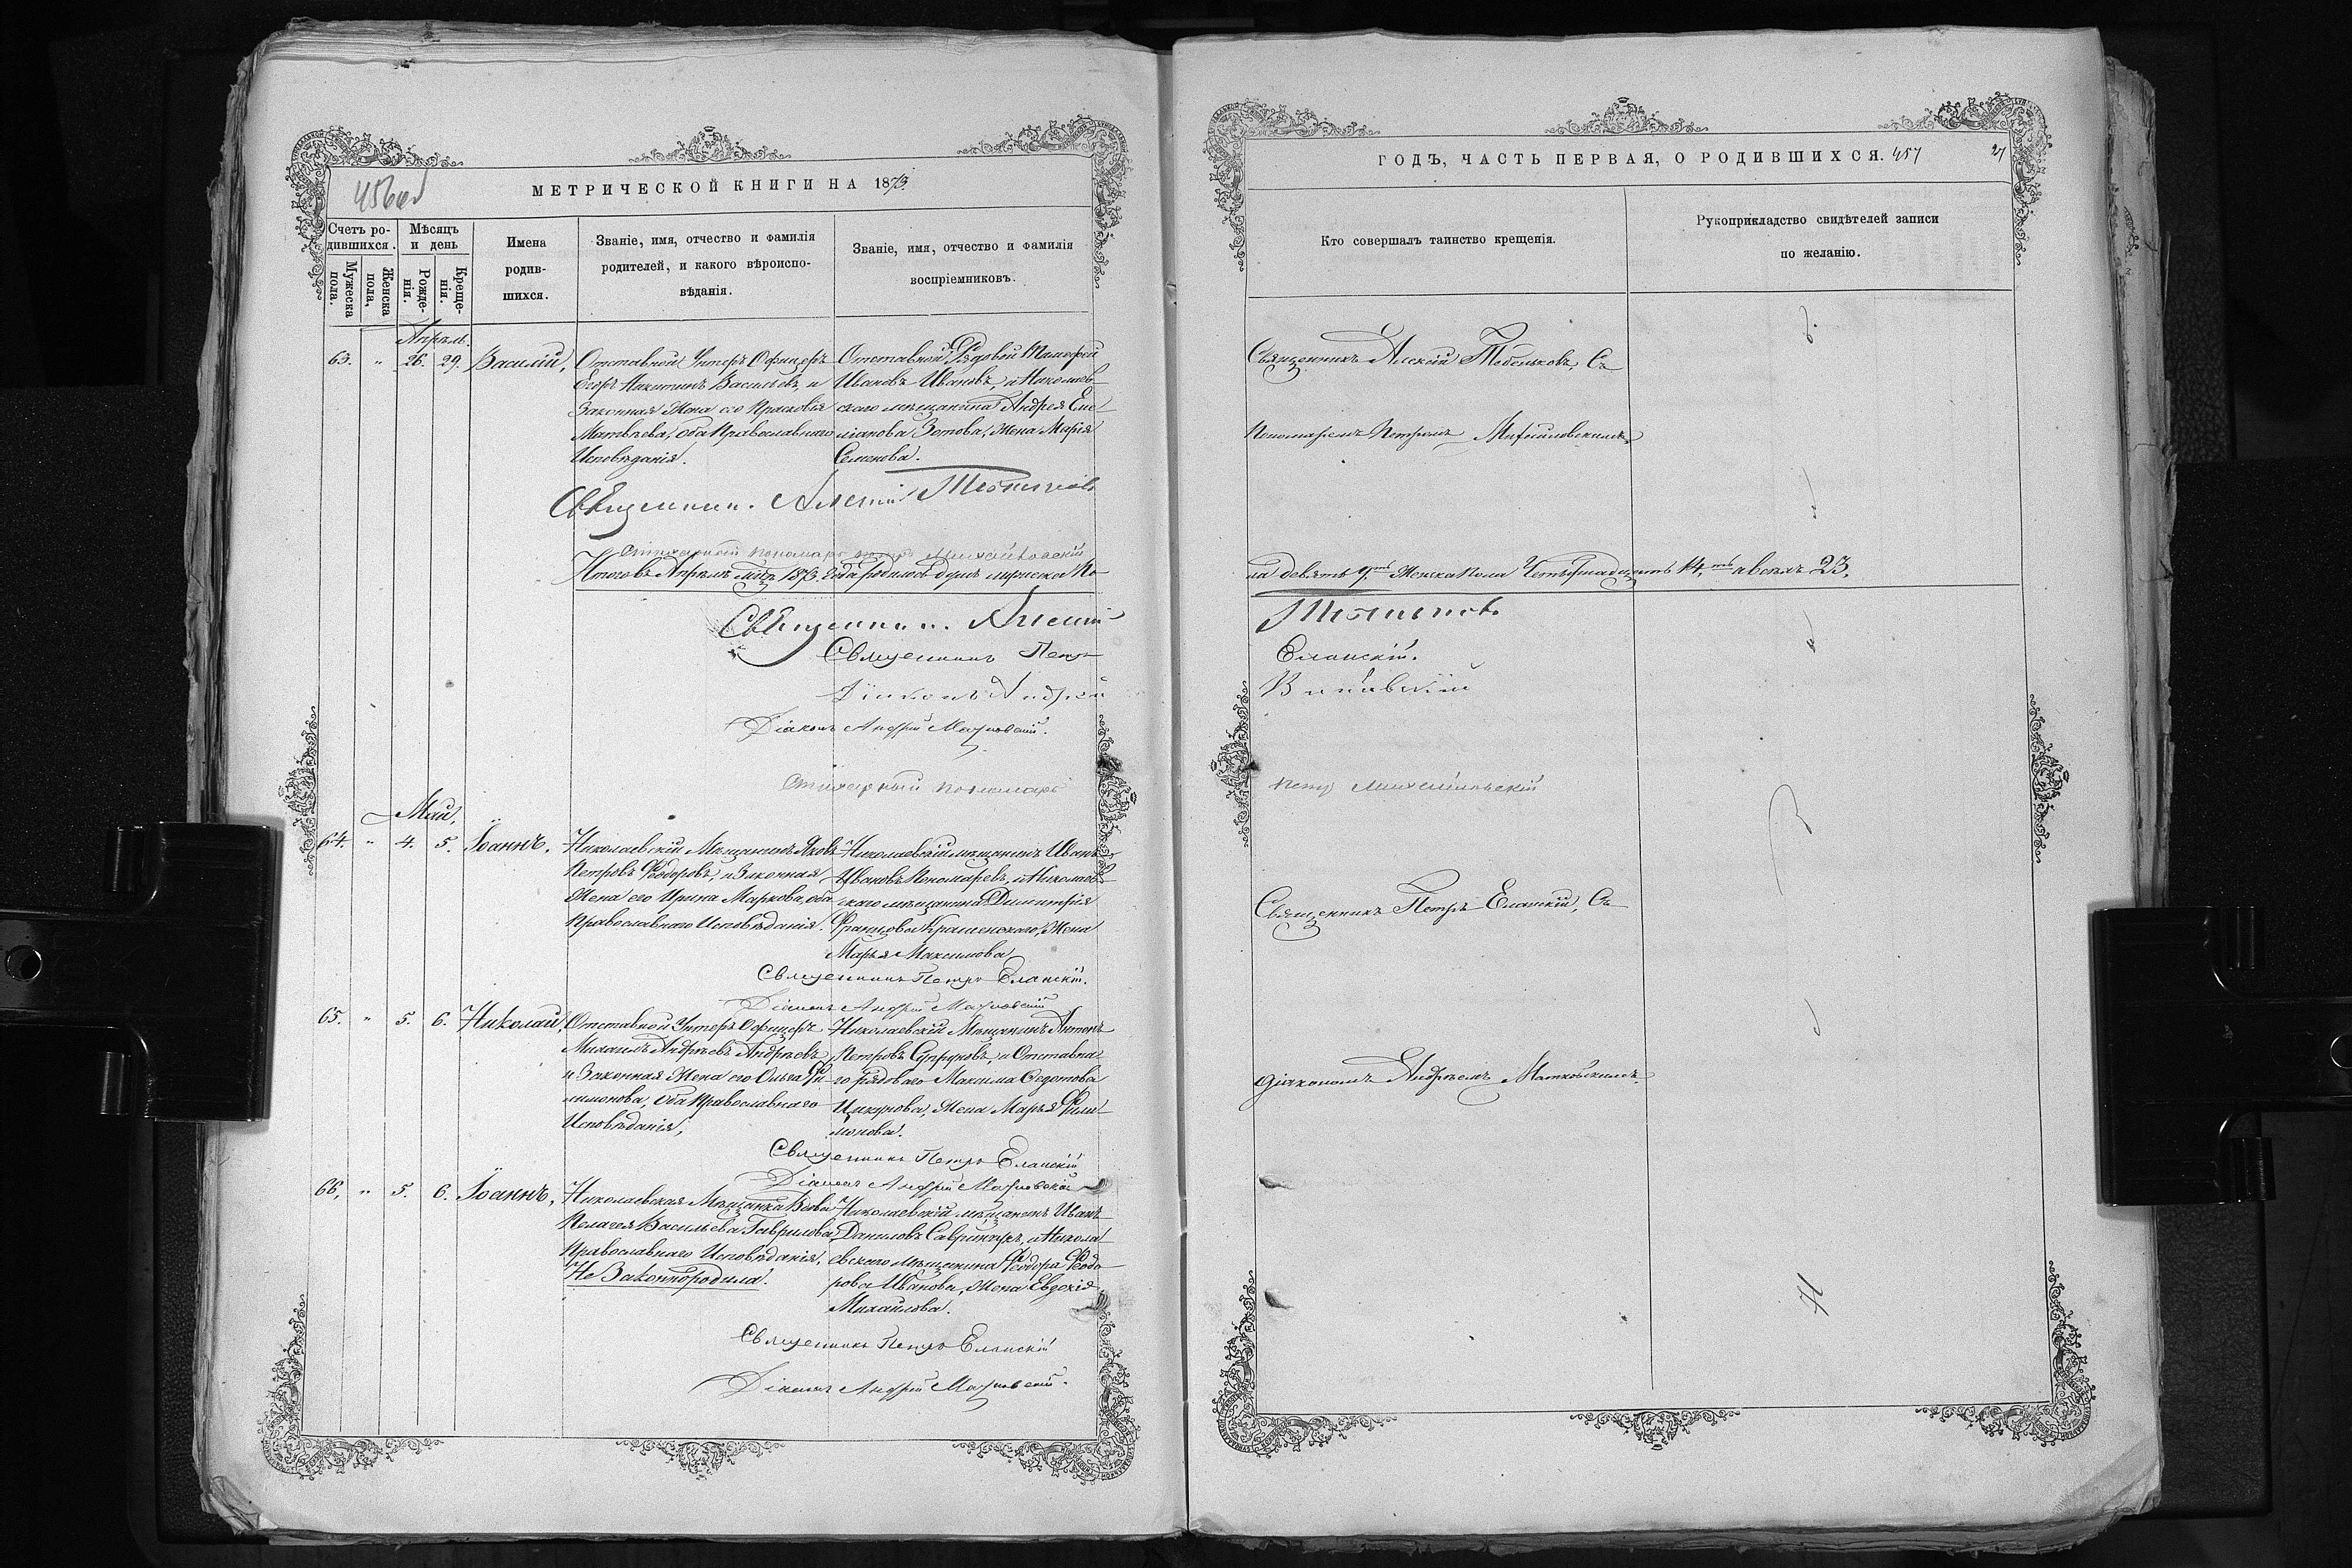 456об
МЕТРИЧЕСКОЙ КНИГИ НА 1873.
Счетъ родившихся.
Мужеска пола.
Женска пола,
Мѣсяцъ и день
Рожденія.
Крещенія.
Имена
родив-
шихся.
Званіе, имя, отчество и фамилія
родителей, и какого вѣроиспо-
вѣданія.
Званіе, имя, отчество и фамилія
воспріемниковъ.
Апрѣль.
63. " 26. 29. Василій,
Отставной Унтеръ Офицеръ
Егоръ Никитинъ Васильевъ, и
Законная Жена его Прасковія
Матвѣева, оба Православнаго
Исповѣданія.
Отставной Рядовой Тимофей
Ивановъ Ивановъ, и Николаев-
скаго мѣщанина Андрея Еме-
ліанова Зотова, Жена Марія
Семенова.
Священникъ Алексій
Стихарный пономарь Петръ Михайловскій
Итого въ Апрѣлѣ мцѣ 1873 года родилось душъ мужеска По-
Священникъ Алексій
Священникъ Петр
Діаконъ Андрей
Діаконъ Андрей
Стихарный пономарь
Май.
64. " 4. 5. Іоаннъ,
Николаевскій Мѣщанинъ Яковъ
Петровъ Ѳеодоровъ, и Законная
Жена его Ирина Маркова, оба
Православнаго Исповѣданія.
Николаевскій мѣщанинъ Иванъ
Ивановъ Пономаревъ, и Николаев-
скаго мѣщанина Димитрія
Жена
Марья Максимова
Священникъ Петръ Еланскій.
Діаконъ Андрей
65. " 5. 6. Николай,
Отставной Унтеръ Офицеръ
Михаилъ Андреевъ Андреевъ,
и Законная Жена его Ольга Фи-
лимонова, Оба Православнаго
Исповѣданія,
Николаевскій Мѣщанинъ Антонъ
Петровъ Супруновъ, и Отставна-
го рядоваго Максима Федотова
Жена Марья Фили-
монова.
Священникъ Петръ Еланскій
Діаконъ Андрей
66, " 5. 6. Іоаннъ,
Николаевская Мѣщанка Вдова
Пелагея Васильева Гаврилова
Православнаго Исповѣданія,
Не Законнородила.
Николаевскій мѣщанинъ Иванъ
Даниловъ и Никола-
евскаго мѣщанина Ѳеодора Ѳеодо-
рова Иванова, Жена Евдокія
Михайлова.
Священникъ Петръ Еланскій
Діаконъ Андрей
ГОДЪ, ЧАСТЬ ПЕРВАЯ, О РОДИВШИХСЯ. 457
Кто совершалъ таинство крещенія.
Рукоприкладство свидѣтелей записи
по желанію.
Священникъ Алексій Тобольковъ, Съ
Пономаремъ Петромъ Михайловскимъ,
ла девять 9. Женска Пола Четырнадцать 14, а всѣхъ 23.
Еланскій.
Петръ Михайловскій
Священникъ Петръ Еланскій, Съ
Діакономъ Андреемъ Матковскимъ.